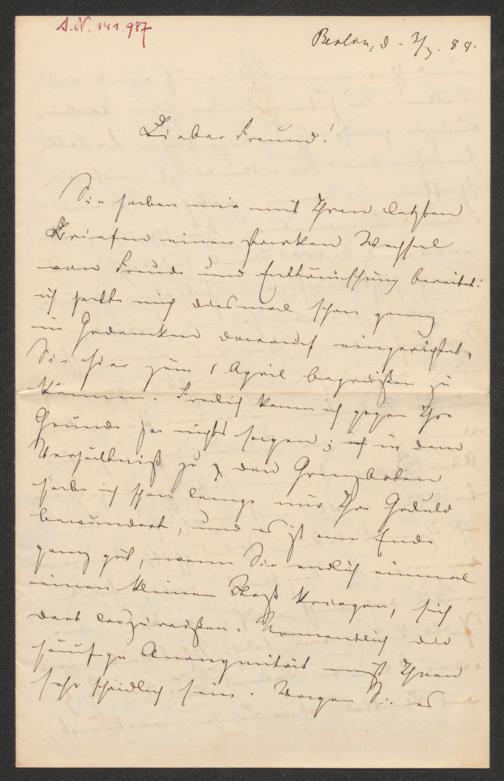 A.N. 141.987
Berlin, d. 3/3. 88.
Lieber Freund!
Sie haben mir mit Ihren letzten
Briefen einen starken Wechsel
von Freude und Enttäuschung bereitet:
ich hatte mich diesmal schon ganz
in Gedanken darauf eingerichtet,
Sie hier zum 1 April begrüßen zu
können. Freilich kann ich gegen Ihre
Gründe gar nichts sagen; in dem
Verhältniß zu den Grenzboten
habe ich schon lange nur Ihre Geduld
bewundert, und es ist am Ende
ganz gut, wenn Sie endlich einmal
einen kleinen Stoß kriegen, sich
dort loszureißen. Namentlich die
häufige Anonymität muß Ihnen
sehr schädlich sein. Wogen Sie es